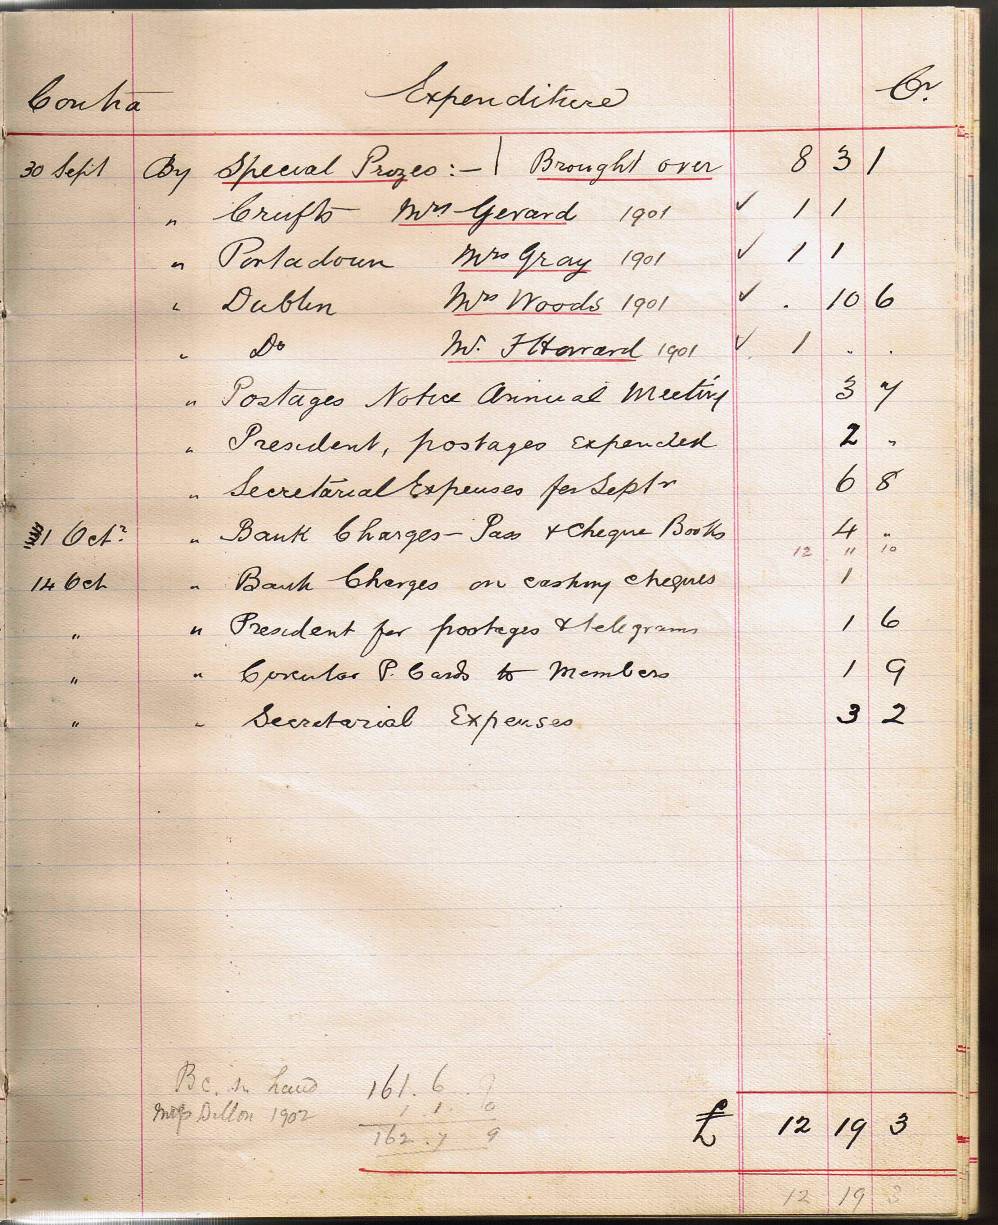 Contra Expenditure Cr.
30 Sept By Special Prizes :- Brought over 8 3 1
" Crufts Mrs Gerard 1901 ✓ 1 1
" Portadown Mrs Gray 1901 ✓ 1 1
" Dublin Mrs Woods 1901 ✓ . 10 6
" Do Mr. F Howard 1901 ✓ 1 . .
" Postages Notice Annual Meeting 3 7
" President, postages expended 2 "
" Secretarial Expenses for Septr 6 8
1 Octr " Bank Charges - Pass & Cheque Books 4 "
12 " 10
14 Oct " Bank Charges on cashing cheques 1
" " President for postages & telegrams 1 6
" " Circular P. Cards to Members 1 9
" " Secretarial Expenses 3 2
Bc. in hand 161. 6. 9
Dillon 1902 1. 1. 0
162. 7 9
£ 12 19 3
12 19 3